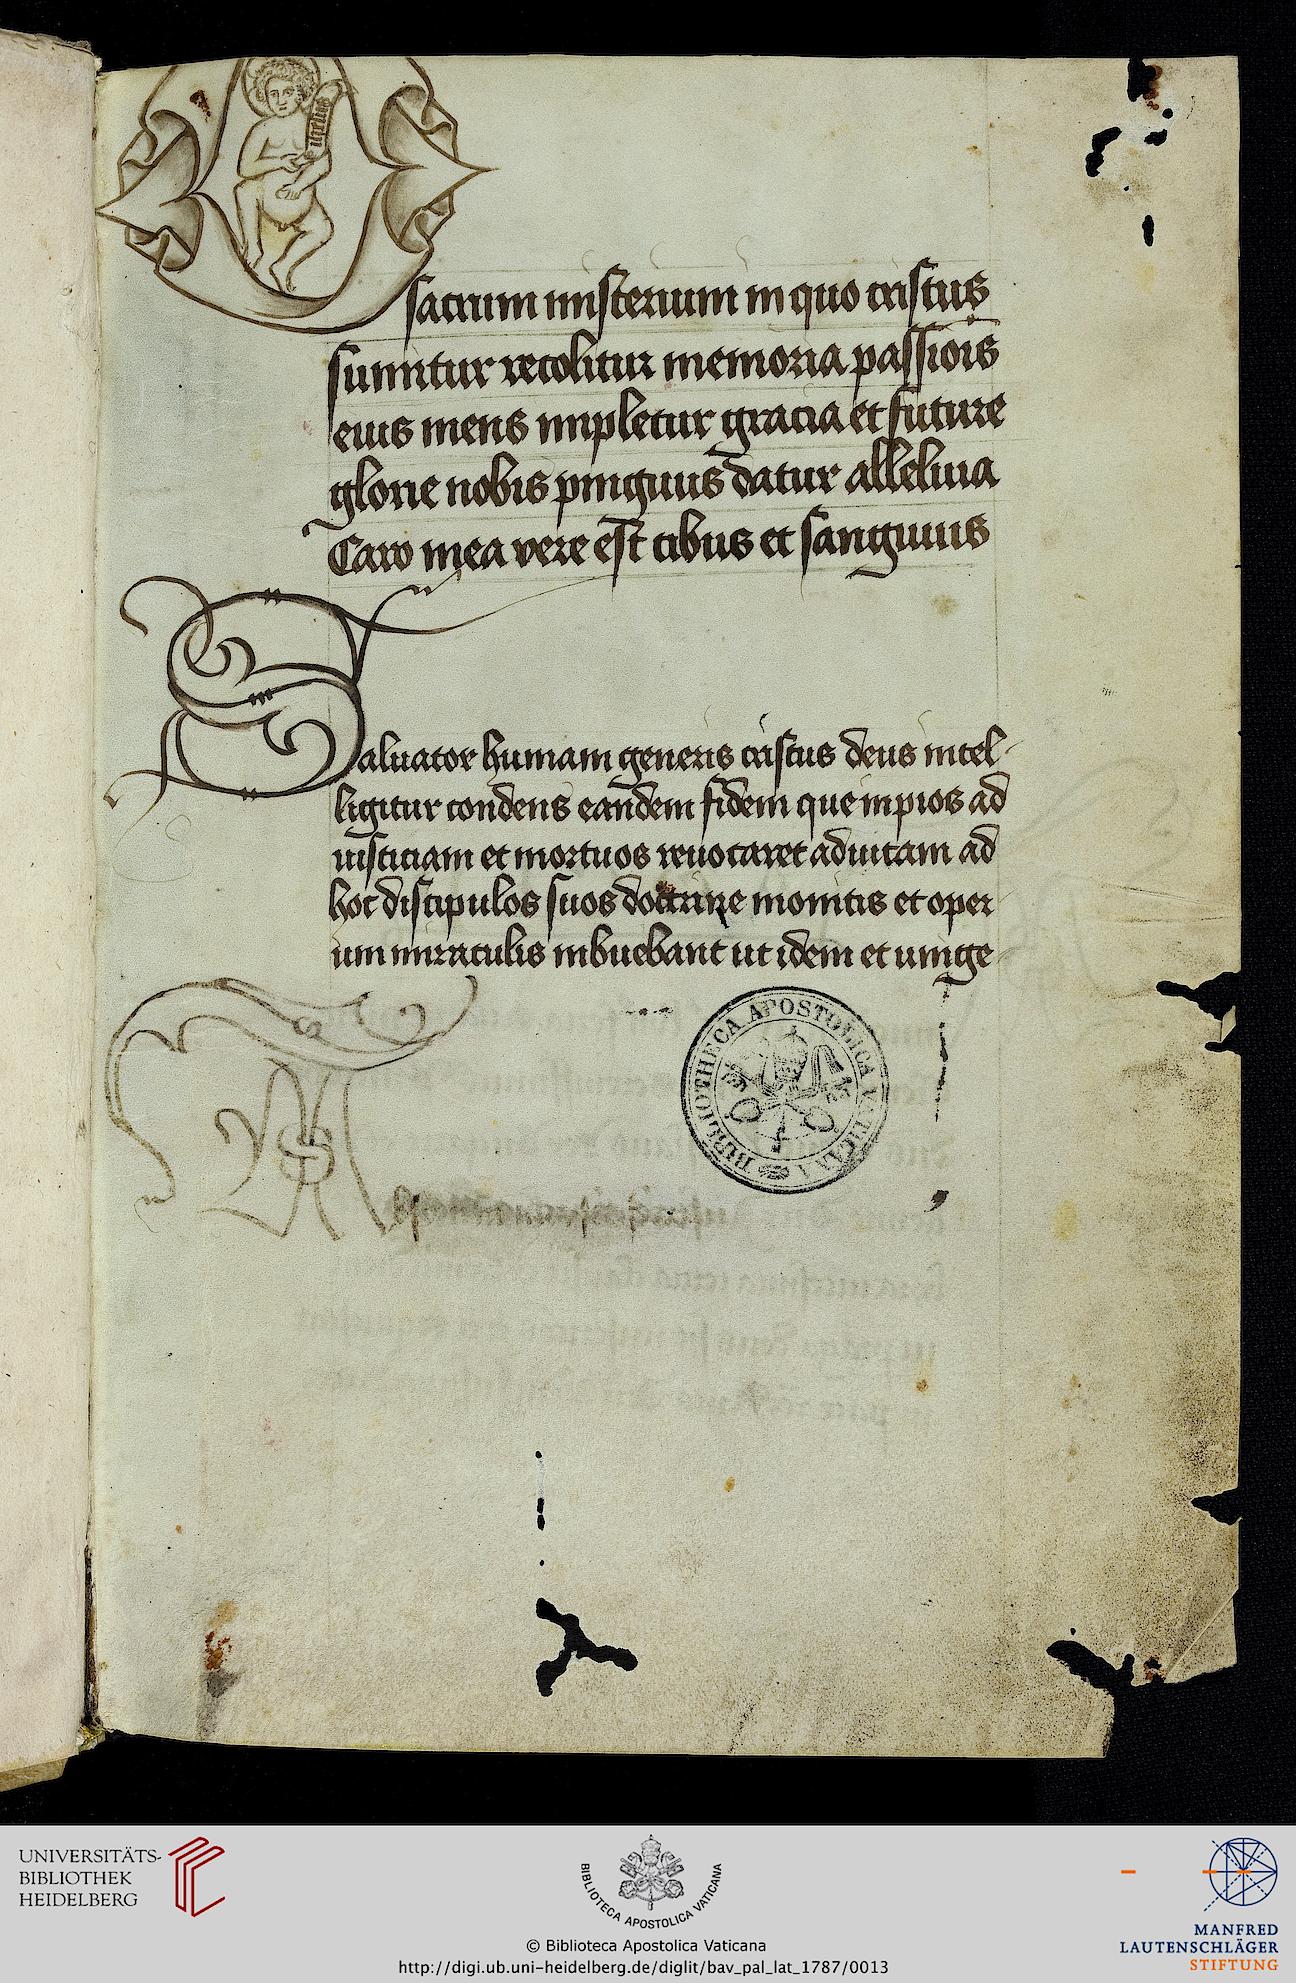 O sacrum misterium in quo cristus
sumitur recolitur memoria passiois̄
eius mens impletur gracia et future
glorie nobis pinguus datur alleluia
Caro mea vere est cibus et sanguuis
Saluator humani generis cristus deus intel-
ligitur condens eandem fidem que inpios ad
iusticiam et mortuos reuocaret aduitam ad
hoc discipulos suos doctrine monitis et oper-
um miraculis inbuebant ut idem et unige-
BIBLIOTHECA APOSTOLICA VATICANA
UNIVERSITÄTS-
BIBLIOTHEK
HEIDELBERG
BIBLIOTECA APOSTOLICA VATICANA
© Biblioteca Apostolica Vaticana
http://digi.ub.uni-heidelberg.de/diglit/bav_pal_lat_1787/0013
MANFRED
LAUTENSCHLÄGER
STIFTUNG